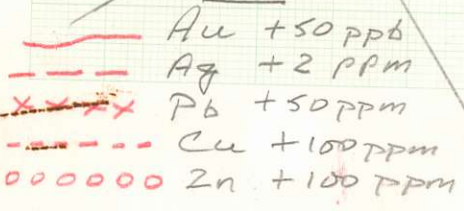 Au +50 ppb
Ag +2 ppm
Pb +50ppm
Cu +100ppm
Zn +100 ppm